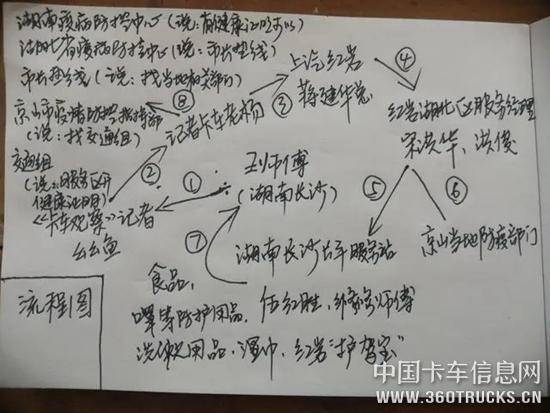 湖南疾病防控中心(说:有健康证明可以)
湖北省疾病防控中心(说:市长热线)
市长热线(说:找当地相关部门)
京山市疫情防控指挥部
(说:找交通组)
交通组
(说:服务区开
健康证明)
《卡车观察》记者
幺幺鱼
⑧
记者卡车老杨
②
①
③
上汽红岩
蒋建华总
④
红岩湖北区服务经理
宋洪华、洪俊
王师傅
(湖南长沙)
⑤
⑥
⑦
湖南长沙卡车服务站
京山当地防疫部门
食品、
口罩等防护用品、伍红胜、师傅
洗漱用品、湿巾、红岩"护驾宝"
流程图
中国卡车信息网
WWW.360TRUCKS.CN